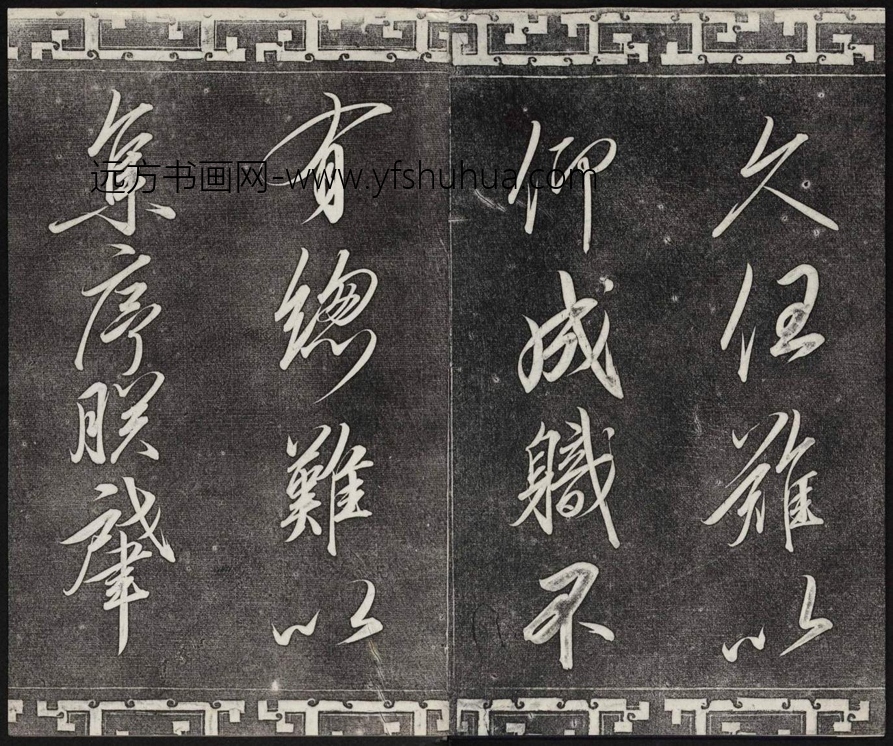 久任難以
仰成職不
有總難以
集序朕肇
远方书画网-www.yfshuhua.com